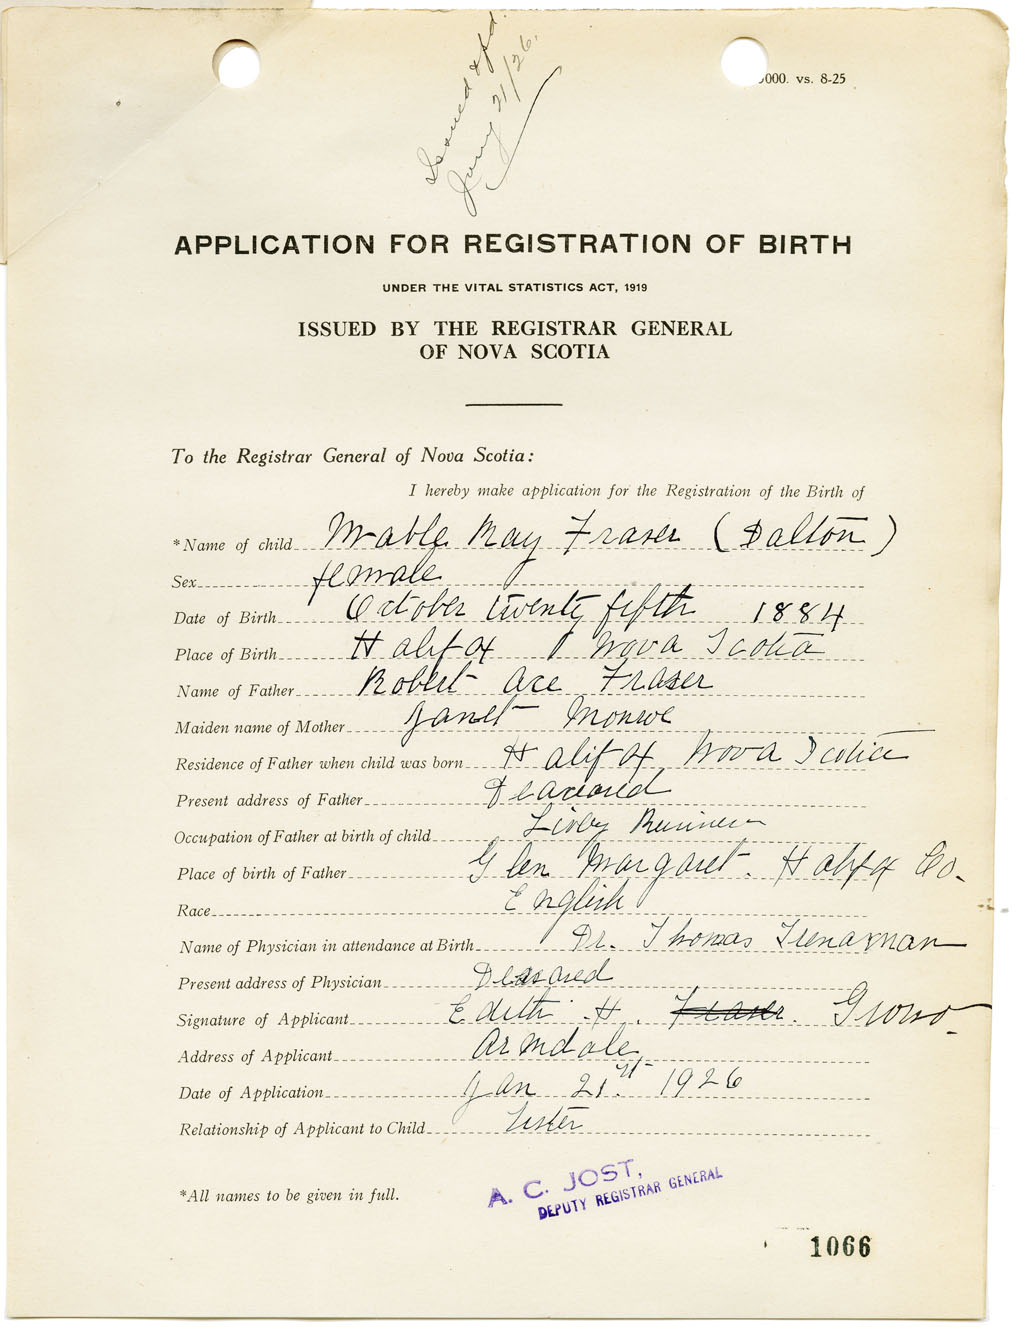 Issued & pd.
Jany 21/26.
000. vs. 8-25
APPLICATION FOR REGISTRATION OF BIRTH
UNDER THE VITAL STATISTICS ACT, 1919
ISSUED BY THE REGISTRAR GENERAL
OF NOVA SCOTIA
To the Registrar General of Nova Scotia:
I hereby make application for the Registration of the Birth of
*Name of child Mable May Fraser (Dalton)
Sex female
Date of Birth October twenty fifth 1884
Place of Birth Halifax Nova Scotia
Name of Father Robert Fraser
Maiden name of Mother Janet Monroe
Residence of Father when child was born Halifax Nova Scotia
Present address of Father Deaceased
Occupation of Father at birth of child Business
Place of birth of Father Glen Margaret. Halifax Co.
Race English
Name of Physician in attendance at Birth Dr. Thomas Trenaman
Present address of Physician Deceased
Signature of Applicant Edith H. Fraser.
Address of Applicant Armdale
Date of Application Jan 21st. 1926
Relationship of Applicant to Child Sister
*All names to be given in full.
A. C. JOST,
DEPUTY REGISTRAR GENERAL
1066